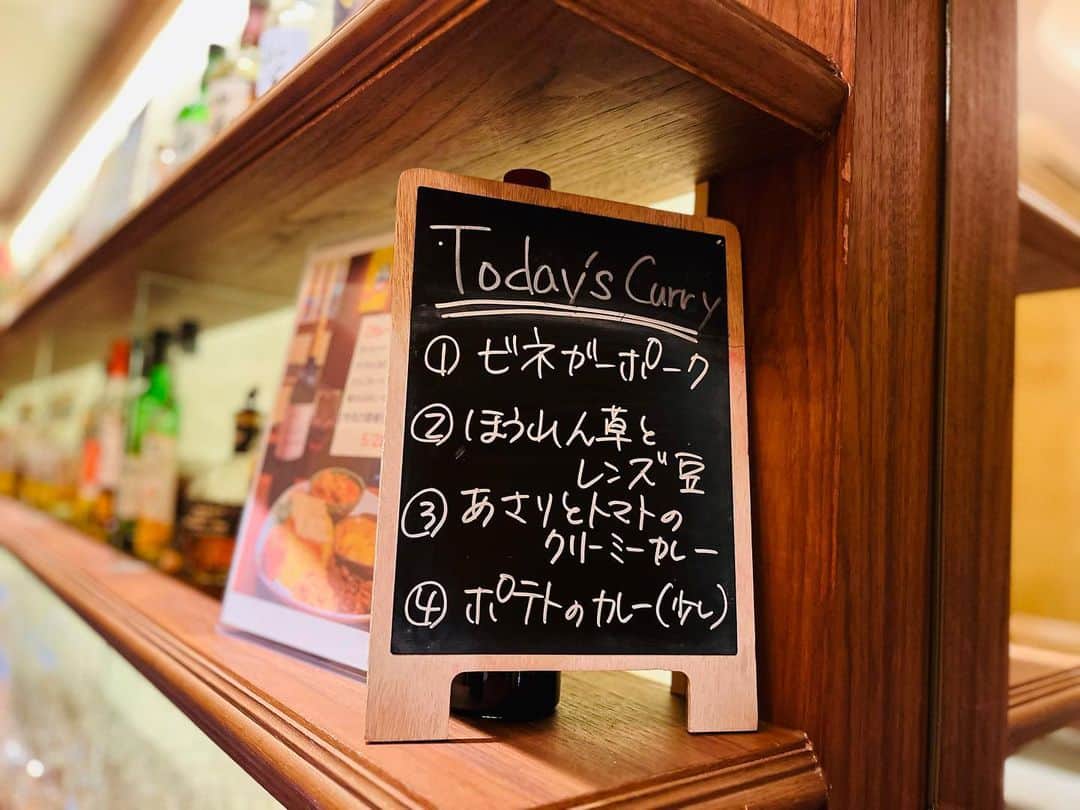 Today's Curry
① ビネガーポーク
② ほうれん草と
レンズ豆
③ あさりとトマトの
クリーミーカレー
④ ポテトのカレー(少し)